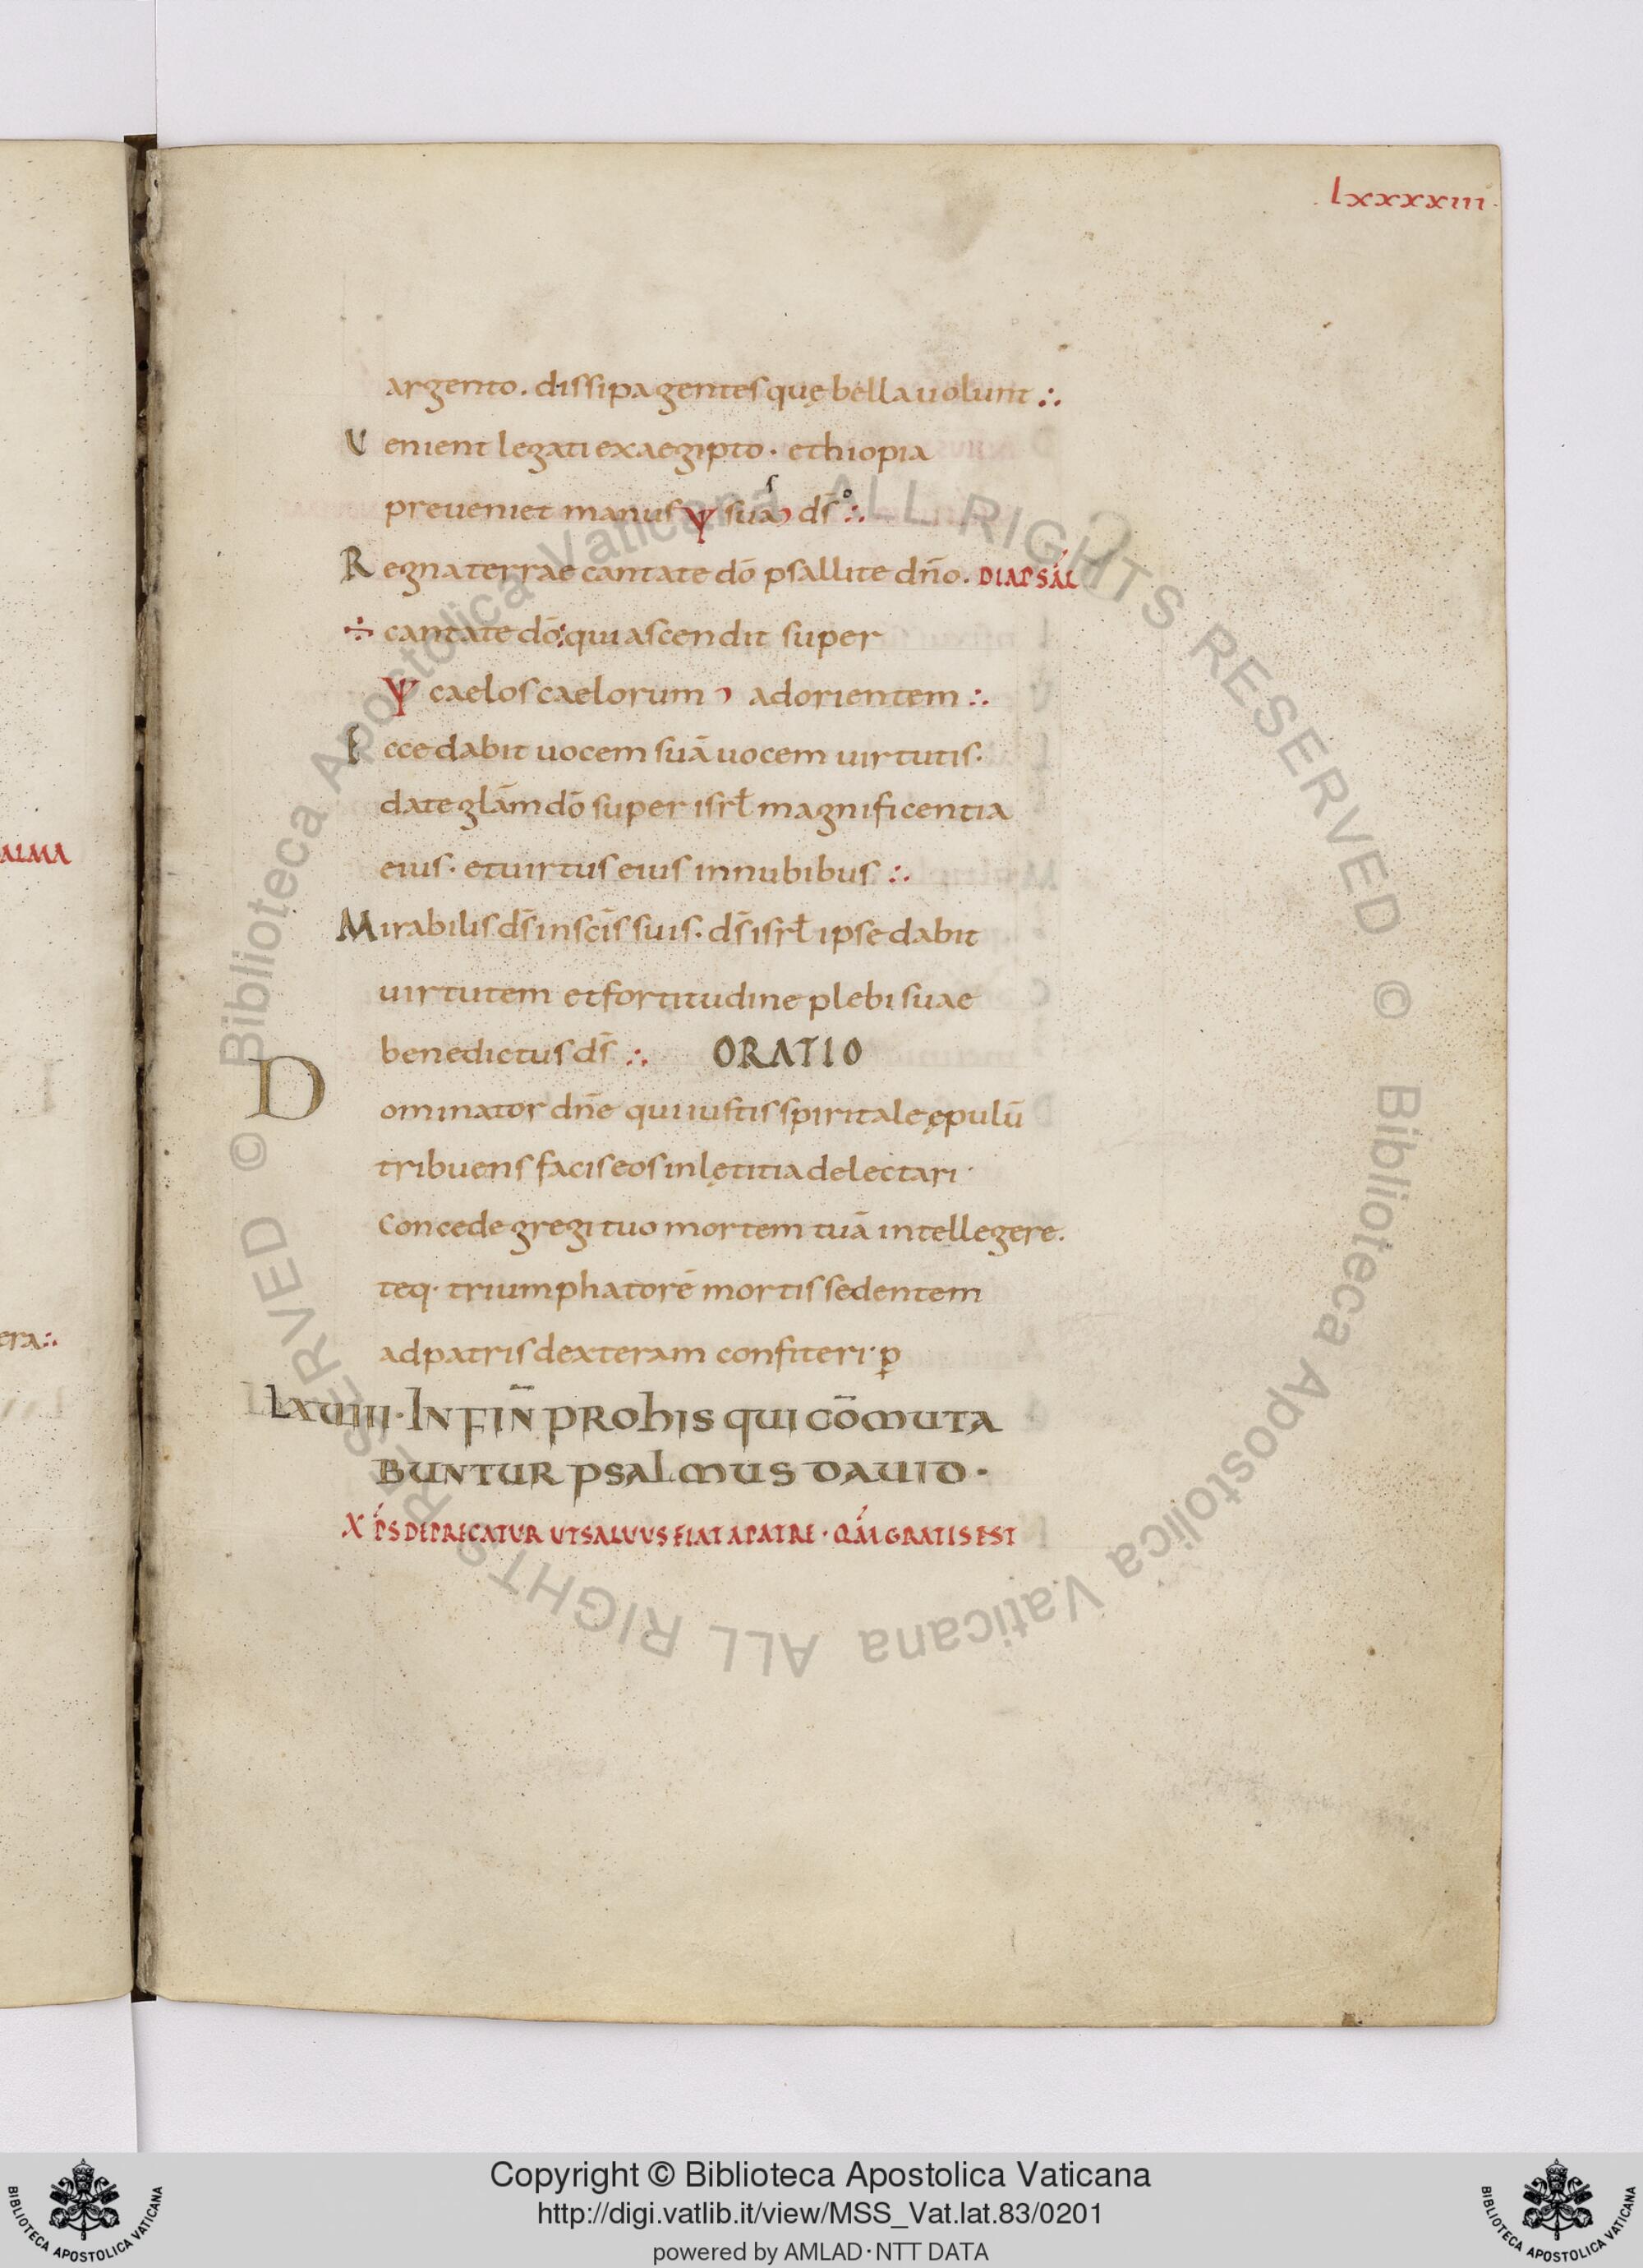 lxxxxiii
argento. dissipa gentes quę bella uolunt ∴
Uenient legati ex aegipto · ethiopia
preueniet manus ψ suās dſ̄ ∴
Regna terrae cantate dō psallite dn̄o. DIAPSAL
÷ cantate dō: qui ascendit super
ψ caelos caelorum adorientem ∴
Ecce dabit uocem suā uocem uirtutis.
date glām dō super isrł magnificentia
eius · et uirtus eius in nubibus ∴
Mirabilis ds̄ in sc̄is suis. ds̄ isrł ipse dabit
uirtutem et fortitudine plebi suae
benedictus ds̄ ∴ ORATIO
Dominator dn̄e qui iustis spiritale ępulū
tribuens facis eos in lętitia delectari·
Concede gregi tuo mortem tuā intellegere.
teq· triumphatorē mortis sedentem
ad patris dexteram confiteri · p̱
LXVIIII · IN FIN̄ PRO HIS QUI CŌMUTA
BUNTUR PSALMUS DAUID ·
XPS DEPRECATUR UT SALUUS FIAT A PATRE · QM GRATIS EST
ALMA
era ∴
© Biblioteca Apostolica Vaticana ALL RIGHTS RESERVED © Biblioteca Apostolica Vaticana ALL RIGHTS RESERVED
Copyright © Biblioteca Apostolica Vaticana
http://digi.vatlib.it/view/MSS_Vat.lat.83/0201
powered by AMLAD·NTT DATA
BIBLIOTECA APOSTOLICA VATICANA
BIBLIOTECA APOSTOLICA VATICANA